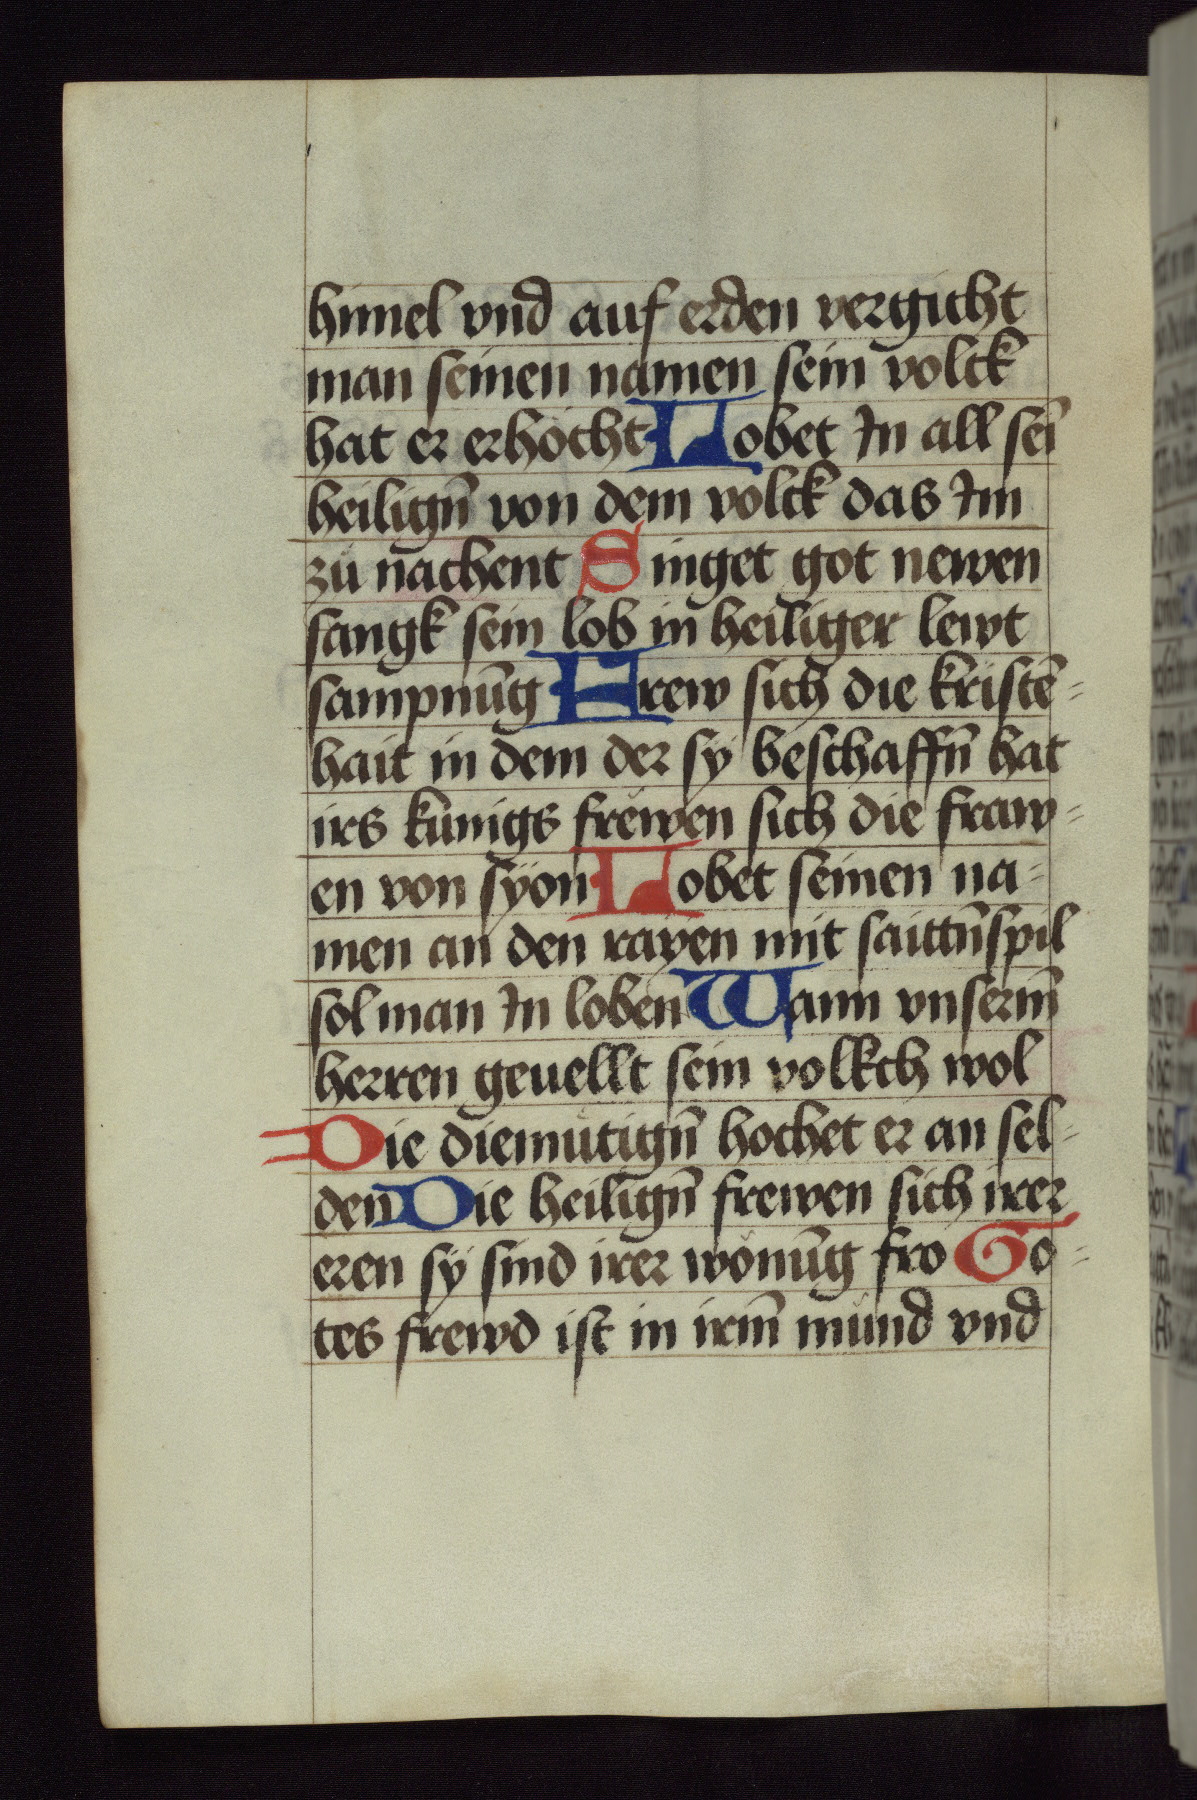 himel vnd auf erden vergicht
man seinen namen sein volck
hat er erhöcht Lobet In all sei͂
heiligñ von dem volck das Im
zu nachent Singet got newen
sangk sein lob in heiliger lewt
sampnu͂g Frew sich die kriste͂-
hait in dem der sÿ beschaffñ hat
irs kunigs frewen sich die fraw-
en von sÿon Lobet seinen na-
men an den rayen mit saittñspil
sol man In loben Wann vnserm̃
herren geuellt sein volkch wol
Die diemutigñ hochet er an sel-
den Die heiligñ frewen sich irer
eren sÿ sind irer wönu͂g fro Go-
tes frewd ist in irm̃ mund vnd